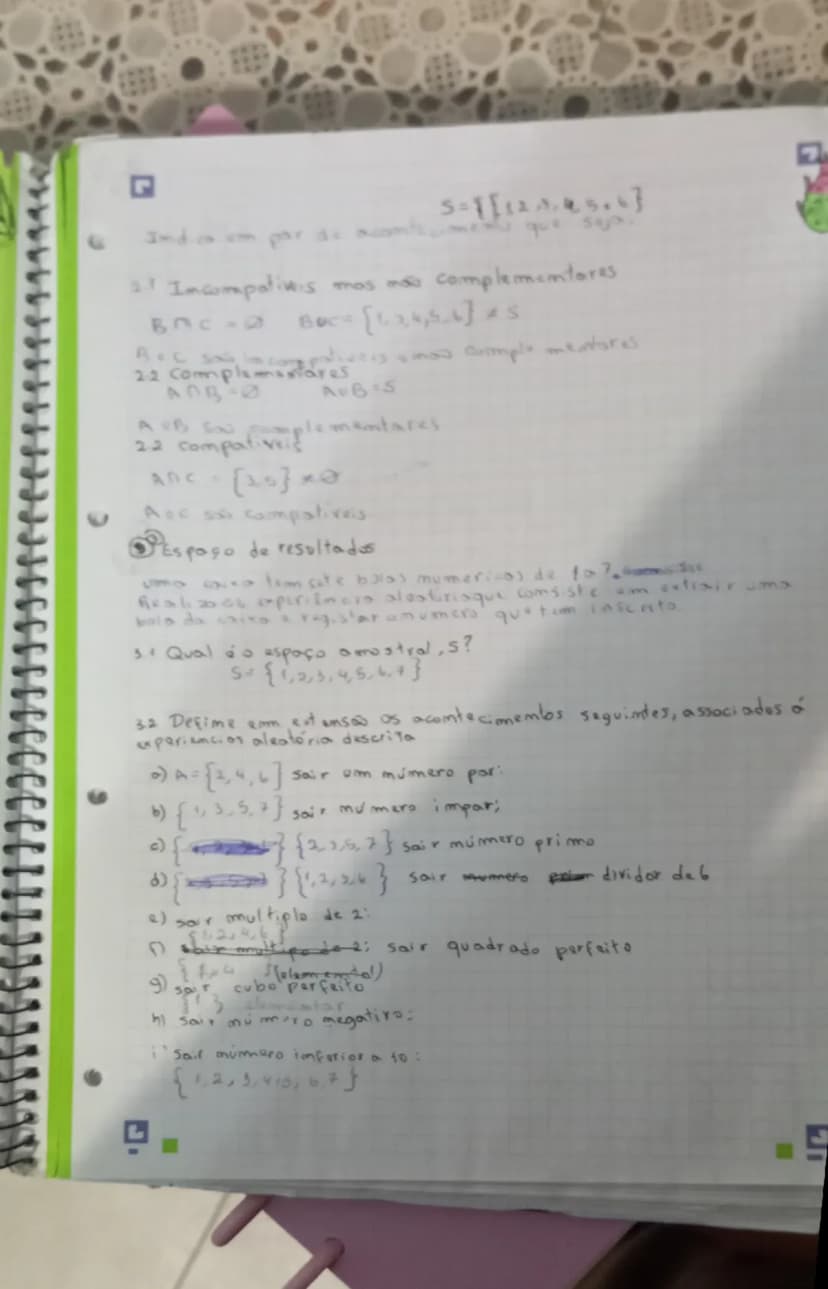 S={[1,2,3,4,5,6}
Indica um par de acontecimento que seja:
2.1 Incompativeis mas não complementares
B∩C = ∅ B∪C = {1,3,4,5,6} ≠ S
são incompativeis e não complementares
2.2 Complementares
A∩B = ∅ A∪B = S
A e B são complementares
2.2 compativeis
A∩C = {3,5} ≠ ∅
A e C são compativeis
3 Espaço de resultados
uma caixa tem sete bolas numericas de 1 a 7.
experiência aleatória que consiste em extrair uma
bola da caixa e registar o número que tem inscrito.
3.1 Qual é o espaço amostral, S?
S = {1,2,3,4,5,6,7}
3.2 Define em extensão os acontecimentos seguintes, associados á
experiencias aleatória descrita
a) A = {2,4,6] sair um número par:
b) {1,3,5,7} sair número impar;
c) { } {2,3,5,7} sair número primo
d) { } {1,2,3,6} sair dividor de 6
e) sair multiplo de 2:
f) sair quadrado perfeito
g) sair cubo perfeito
{1} elementar
h) sair número negativo:
i) Sair número inferior a 10:
{1,2,3,4,5,6,7}